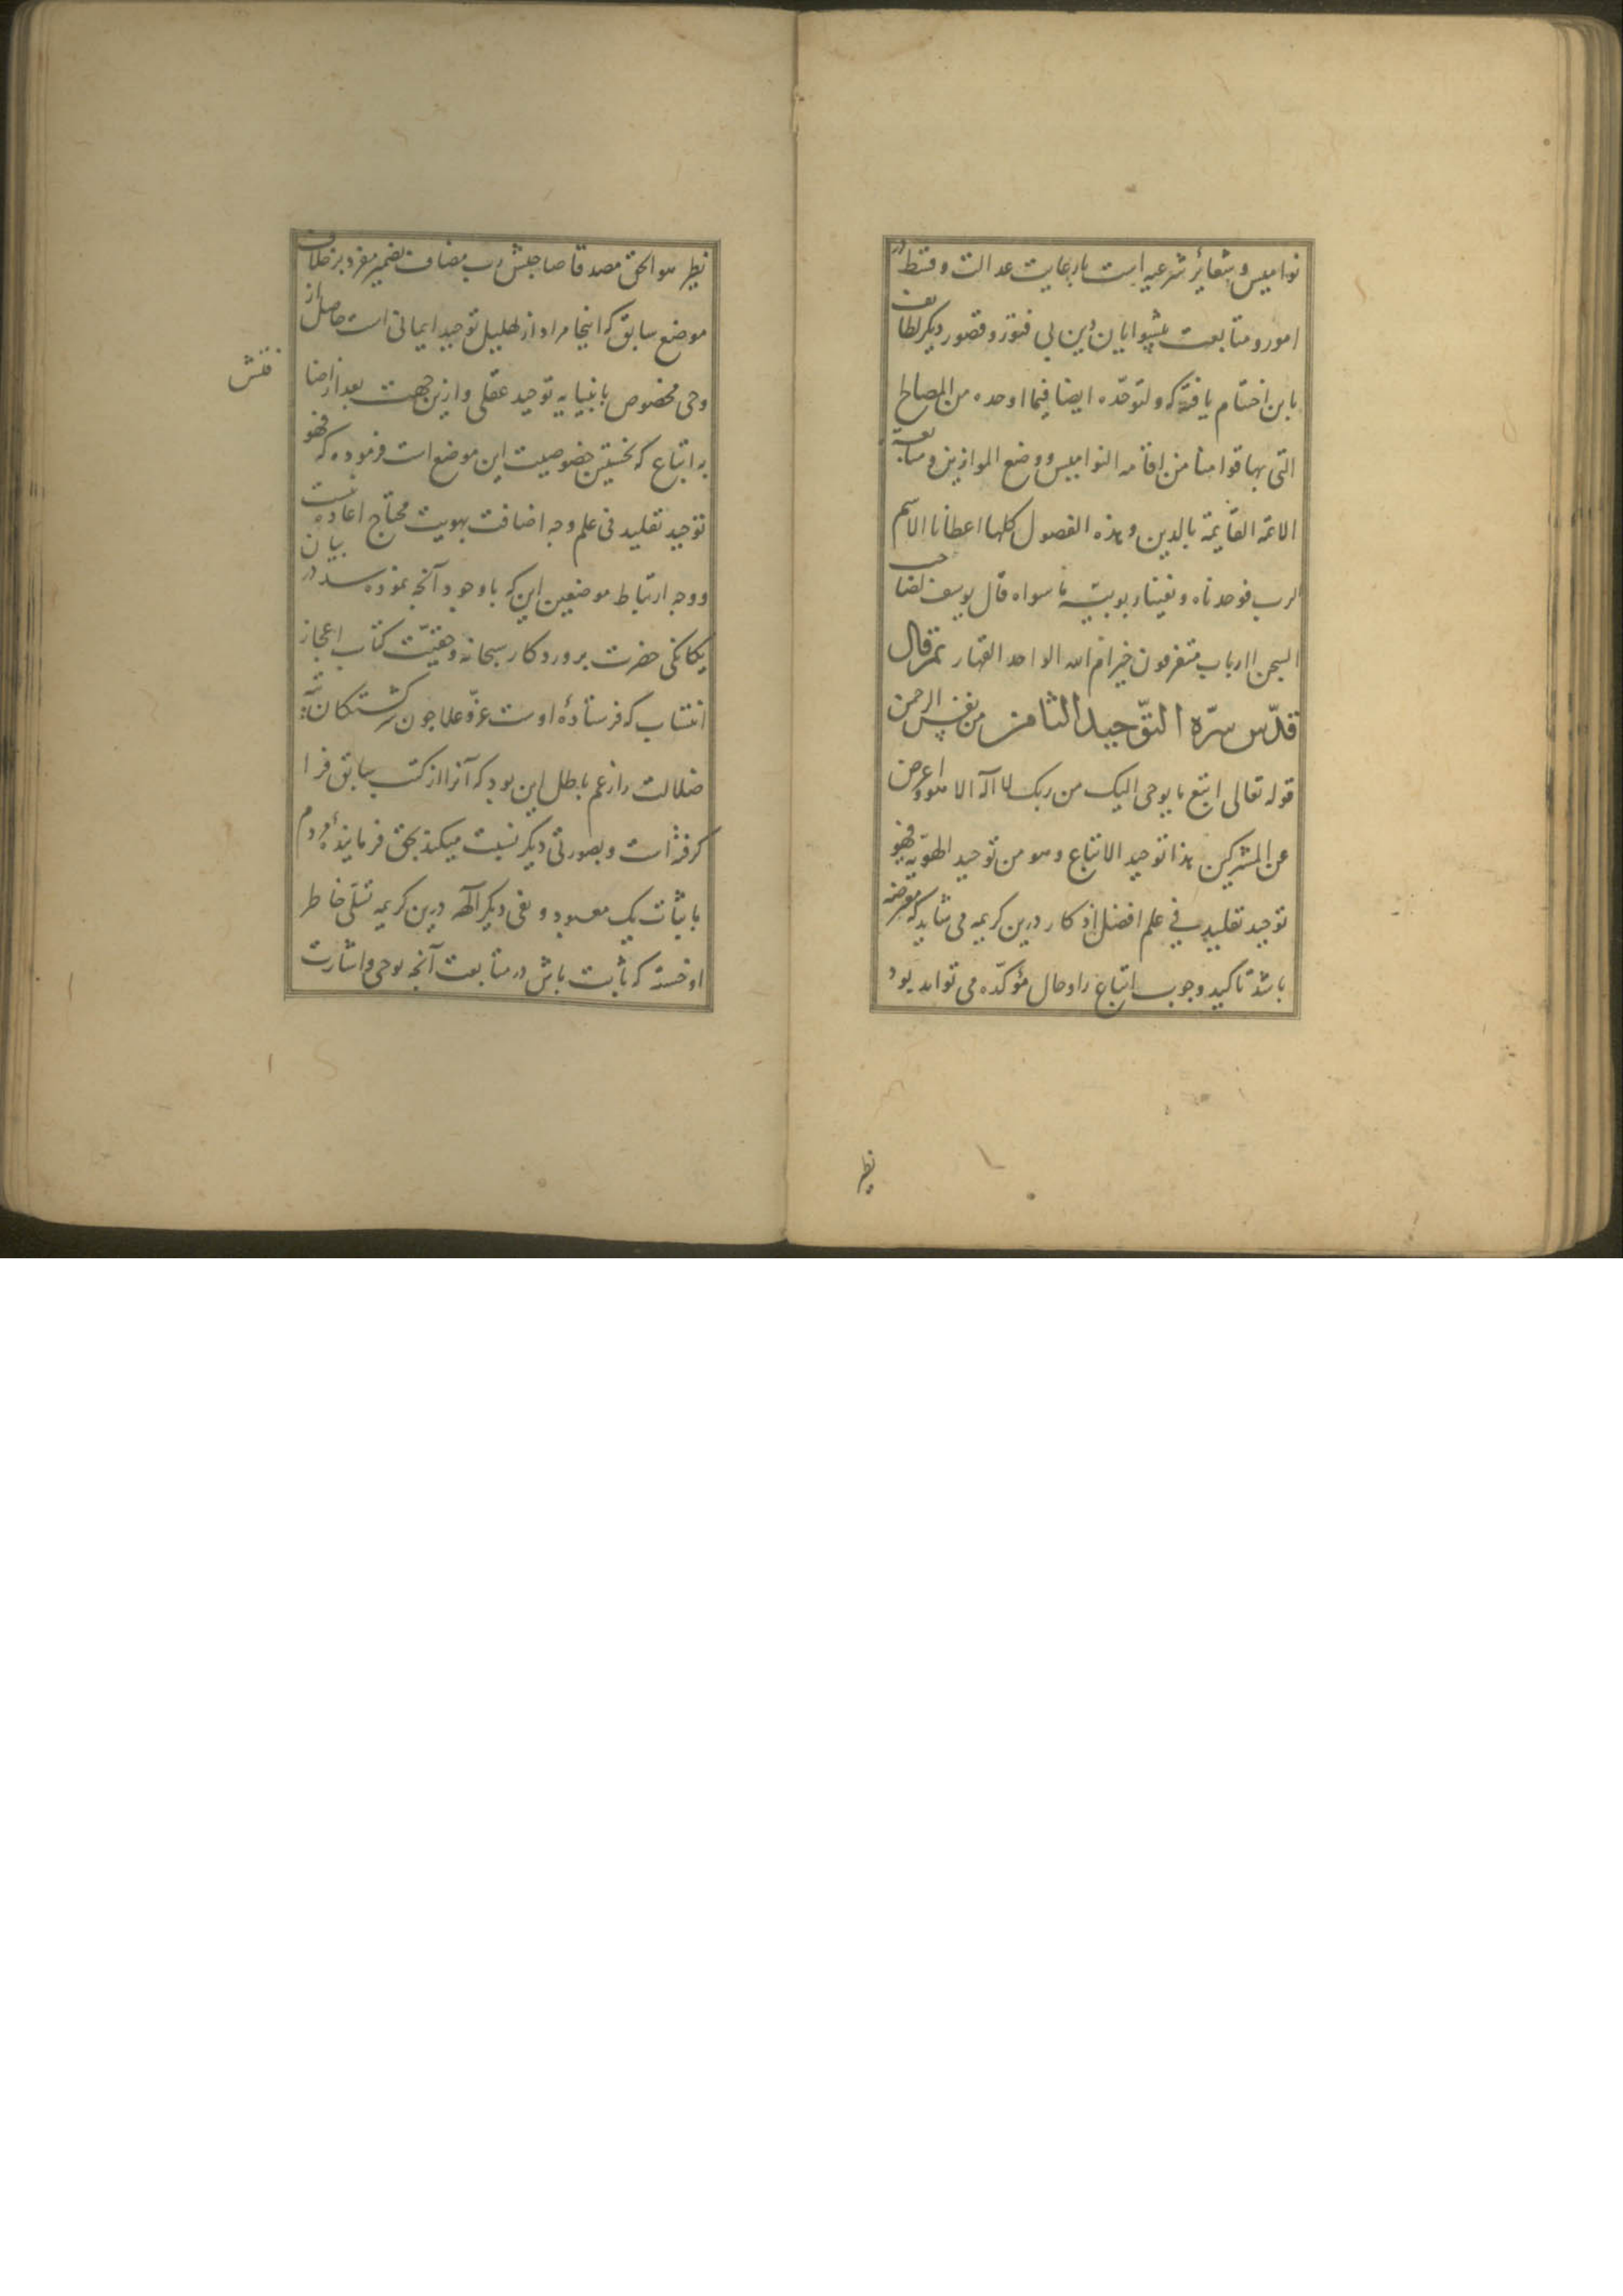 نوامیس و شعائر شرعیه است با رعایت عدالت و قسط در
امور و متابعت پیشوایان دین بی فتور و قصور دیگر لطائف
باین اختتام یافته که و لتوحّده ایضا فیما اوحده من المصالح
التی بها قوامنا من اقامه النوامیس و وضع الموازین و متابعة
الائمة القایمة بالدین و هذه الفصول کلها اعطانا الاسم
الرب فوحدناه و نفینا ربوبیته ما سواه قال یوسف لصاحب
السجن اارباب متفرقون خیر ام الله الواحد القهار ثم قال
قدّس سرّه التّوحید الثامن من نفس الرحمن
قوله تعالی اتبع ما یوحی الیک من ربک لا اله الا هو و اعرض
عن المشرکین هذا توحید الاتباع و هو من توحید الهویه فهو
توحید تقلید فی علم افضل اذکار درین کریمه می شاید که معترضه
باشد تاکید وجوب اتباع را و حال مؤکّده می تواند بود
نظر
نظر هو الحق مصدقا صاحبش رب مضاف بضمیر مفرد بر خلاف
موضع سابق که اینجا مراد از تهلیل توحید ایمانی است حاصل از
وحی مخصوص بانبیا نه توحید عقلی و ازین جهت بعد از اضا
فتش
به اتباع که نخستین خصوصیت این موضع است فرموده که فهو
توحید تقلید فی علم وجه اضافت بهویت محتاج اعاده نیست
و وجه ارتباط موضعین این که باوجود آنچه نموده سد در بیان
یکانکی حضرت پروردکار سبحانه و حقیّت کتاب اعجاز
انتساب که فرستادهٔ اوست عزّ و علا چون سرکشتکان تیه
ضلالت را زعم باطل این بود که آنرا از کتب سابق فرا
کرفته است و بصورتی دیکر نسبت میکند بحق فرمایندهٔ مردم
باثبات یک معبود و نفی دیکر آلهه درین کریمه تسلّی خاطر
او خسته که ثابت باش در متابعت آنچه بوحی و اشارت